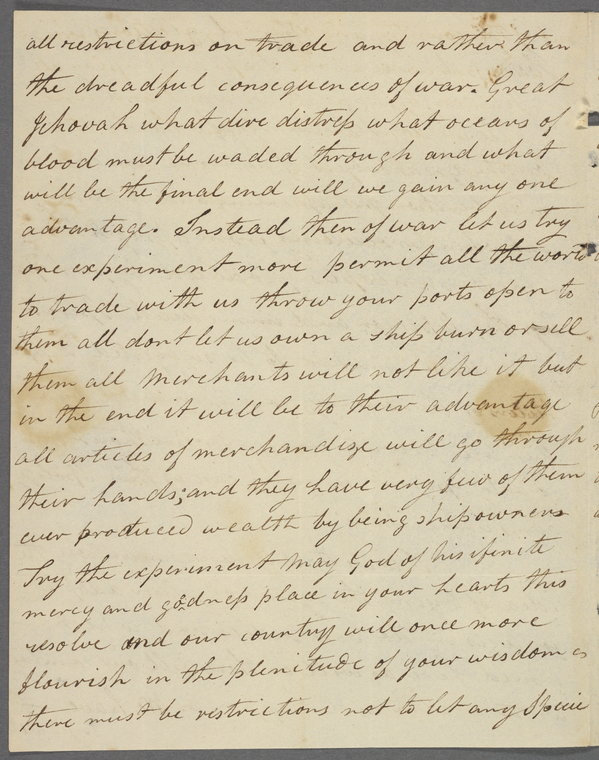 all restrictions on trade and rather than
the dreadful consequences of war. Great
Jehovah what dire distress what oceans of
blood must be waded through and what
will be the final end will we gain any one
advantage. Instead then of war let us try
one experiment more permit all the world
to trade with us throw your ports open to
them all dont let us own a ship burn or sell
them all Merchants will not like it but
in the end it will be to their advantage
all articles of merchandize will go through
their hands; and they have very few of them
ever produced wealth by being shipowners
Try the experiment may God of his ifinite
mercy and goodness place in your hearts this
resolve and our country will once more
flourish in the plenitude of your wisdom
there must be restrictions not to let any Specie